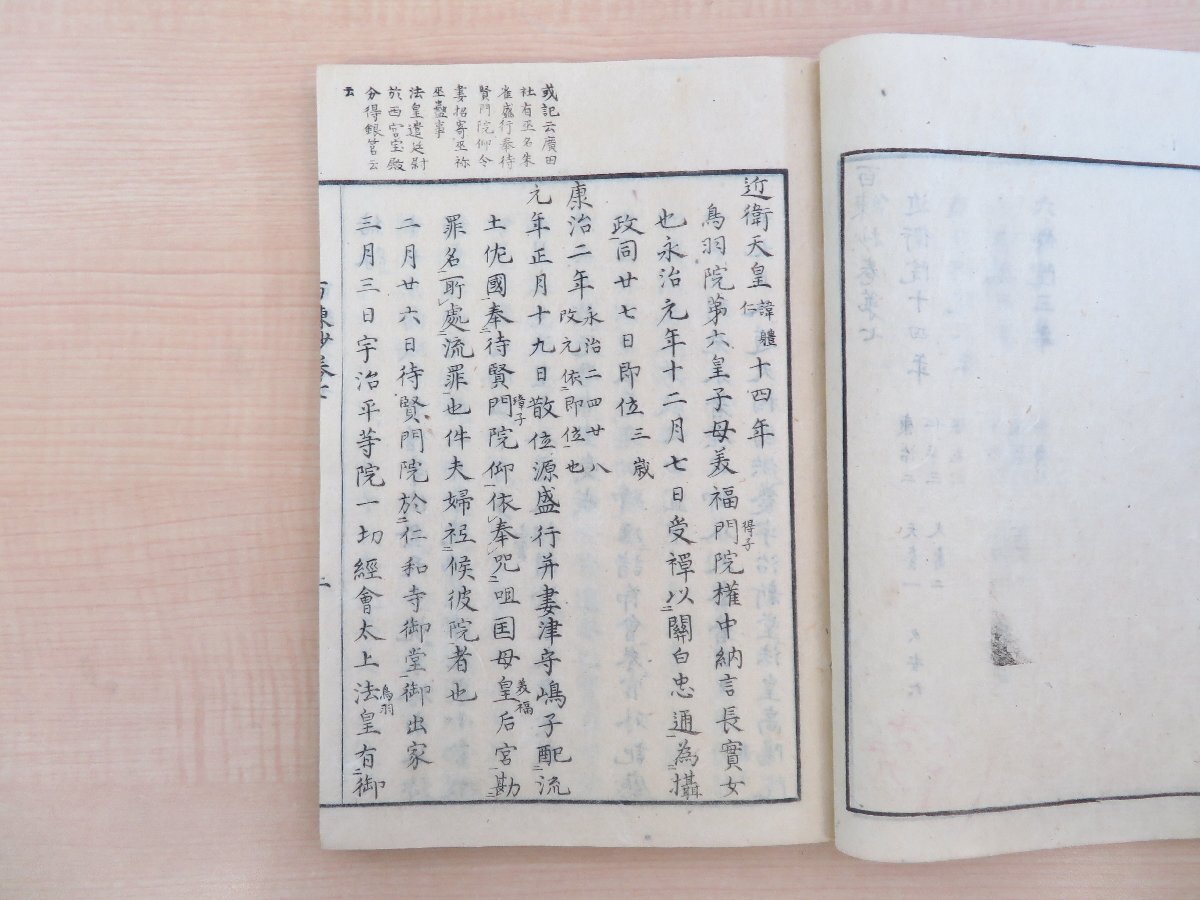 或記云廣田
社有巫名朱
雀盛行奉待
賢門院仰令
妻招寄巫祢
巫蠱事
法皇遣廷尉
於西宮宝殿
分得銀筥云
云
近衛天皇諱體仁十四年
鳥羽院第六皇子母美福門院得子權中納言長實女
也永治元年十二月七日受禪以二關白忠通一為二攝
政一同廿七日即位三歳
康治二年永治二四廿八改元依二即位一也
元年正月十九日散位源盛行并妻津守嶋子配二流
土佐國一奉二待賢門院璋子仰一依レ奉レ咒二咀国母皇后宮美福一勘二
罪名一所レ處二流罪一也件夫婦祗二候彼院一者也
二月廿六日待賢門院於二仁和寺御堂一御出家
三月三日宇治平等院一切經會太上法皇鳥羽有二御
百練抄卷七
二
百練抄卷第七
近衛院十四年
康治二